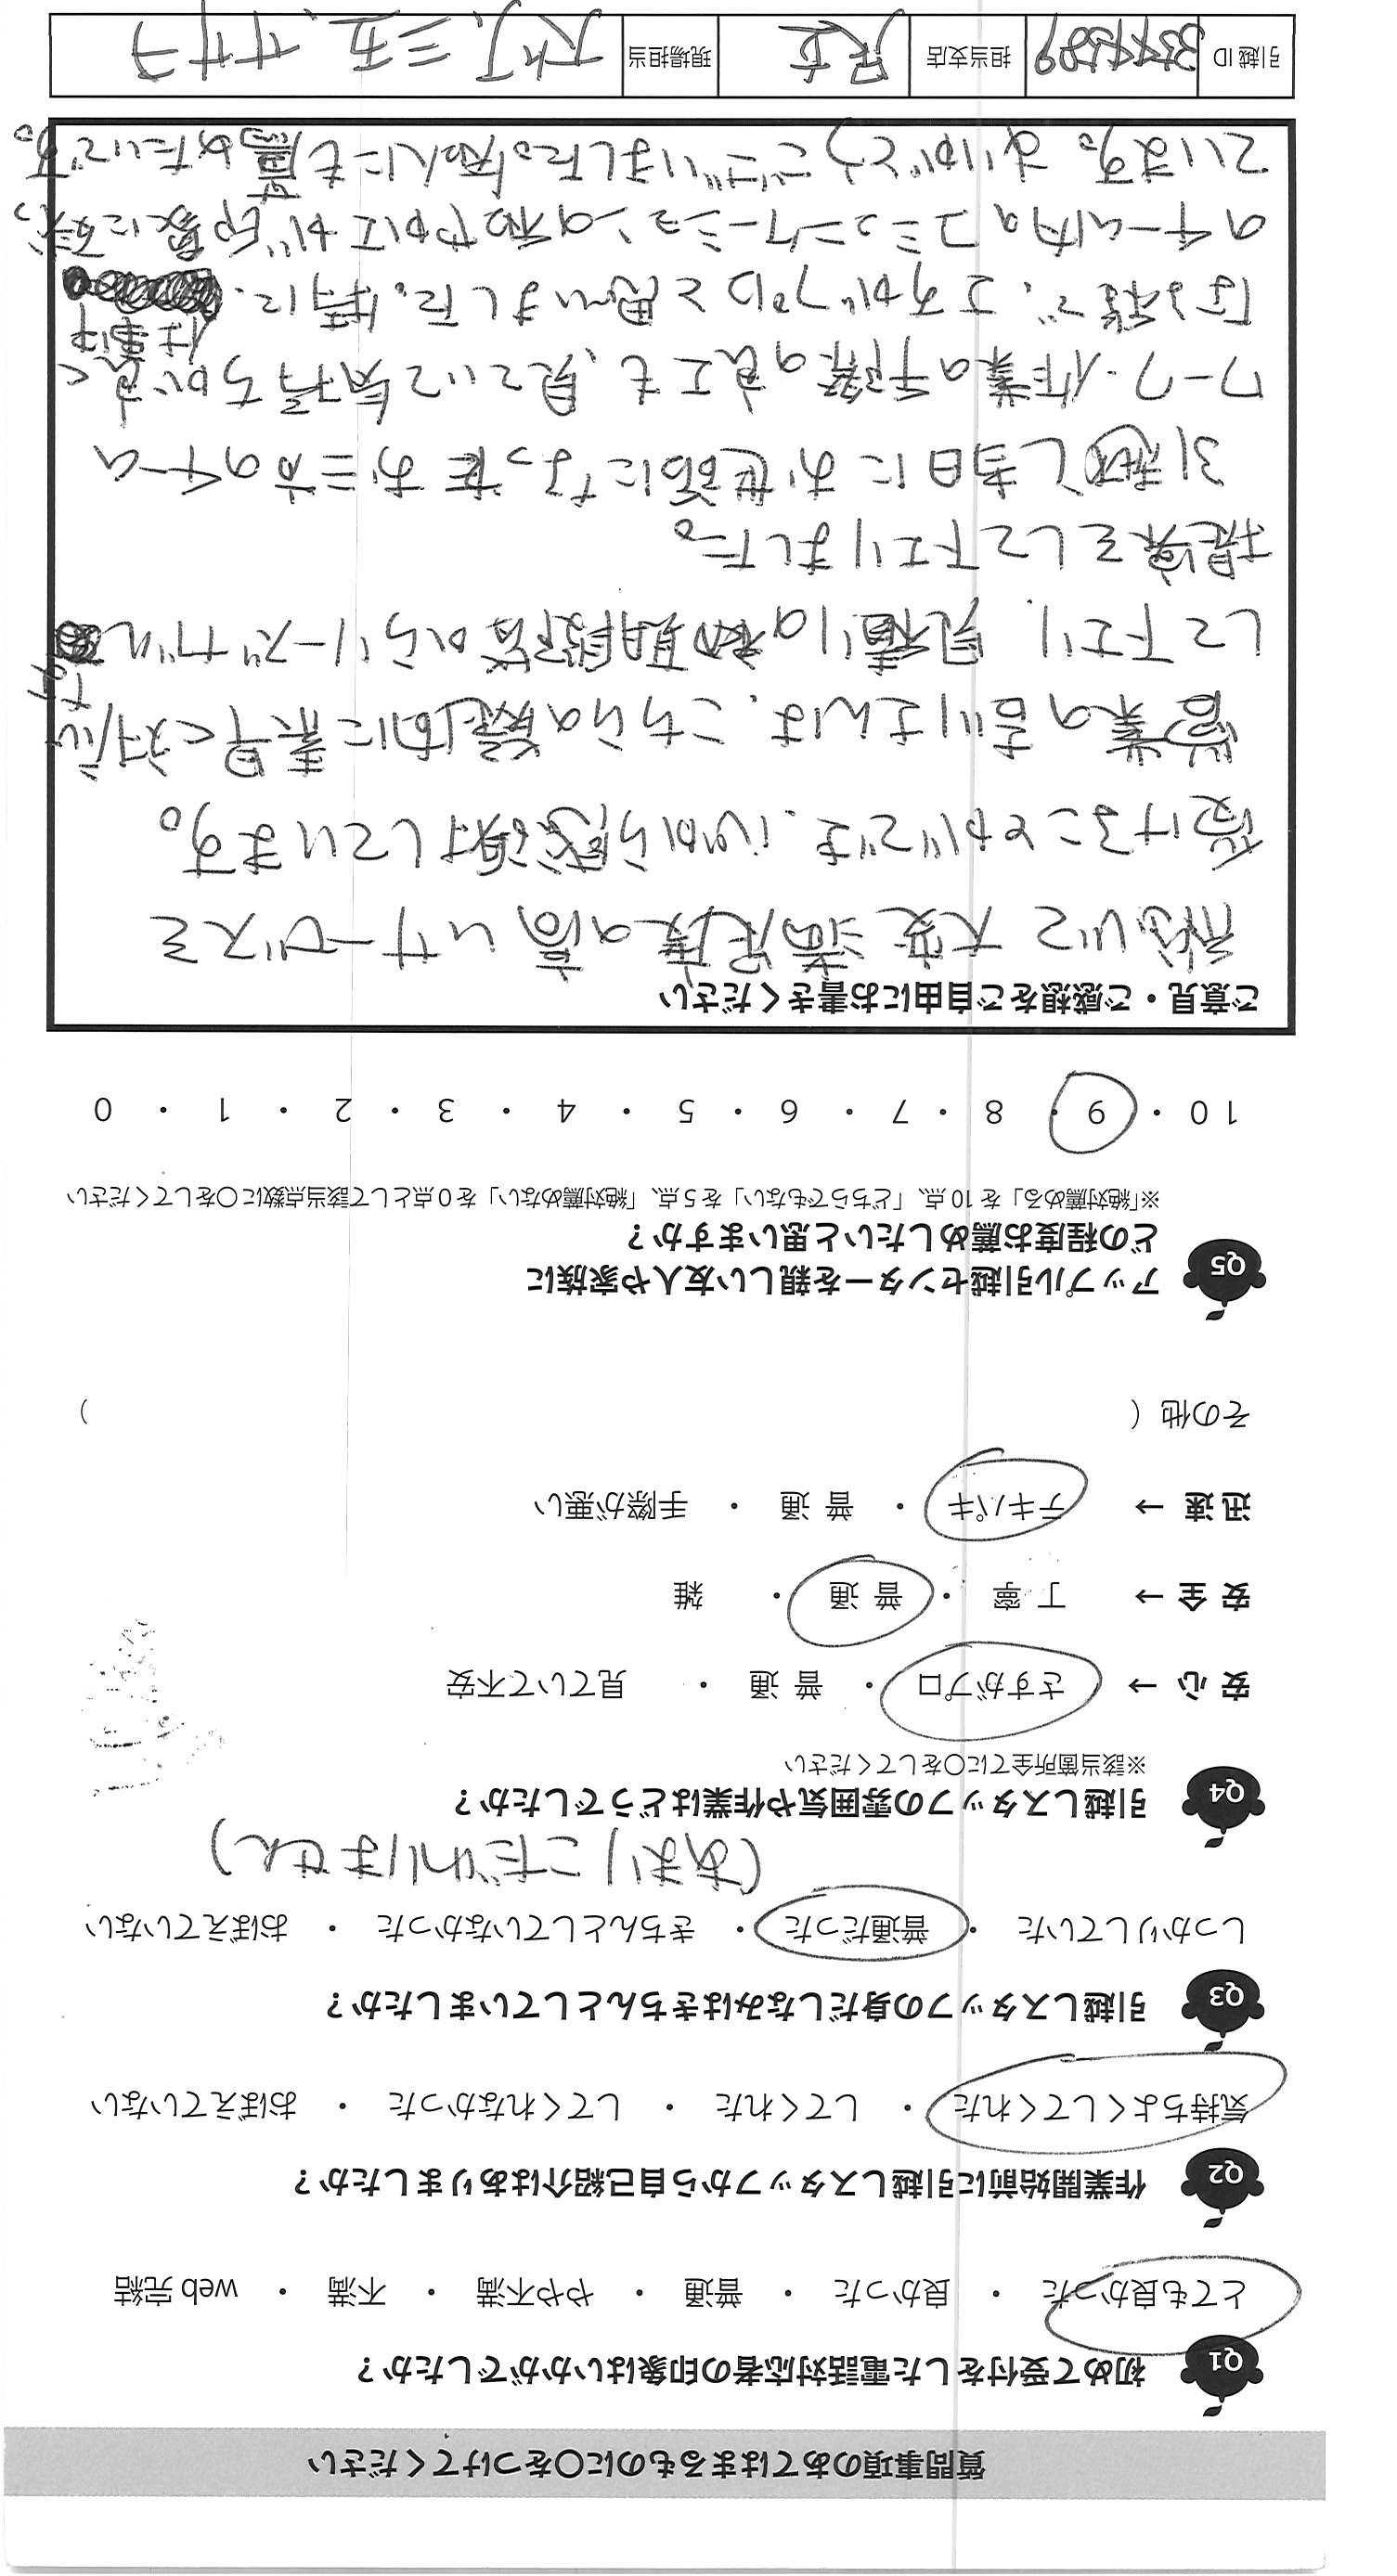 質問事項のあてはまるものに○をつけてください
Q1 初めて受付をした電話対応者の印象はいかがでしたか？
とても良かった ・ 良かった ・ 普通 ・ やや不満 ・ 不満 ・ web 完結
Q2 作業開始前に引越しスタッフから自己紹介はありましたか？
気持ちよくしてくれた ・ してくれた ・ してくれなかった ・ おぼえていない
Q3 引越しスタッフの身だしなみはきちんとしていましたか？
しっかりしていた ・ 普通だった ・ きちんとしていなかった ・ おぼえていない
(あまりこだわりません)
Q4 引越しスタッフの雰囲気や作業はどうでしたか？
※該当箇所全てに○をしてください
安 心 → さすがプロ ・ 普 通 ・ 見ていて不安
安 全 → 丁 寧 ・ 普 通 ・ 雑
迅 速 → テキパキ ・ 普 通 ・ 手際が悪い
その他 ( )
Q5 アップル引越センターを親しい友人や家族に
どの程度お薦めしたいと思いますか？
※「絶対薦める」を 10 点、「どちらでもない」を 5 点、「絶対薦めない」を 0 点として該当点数に○をしてください
10 ・ 9 ・ 8 ・ 7 ・ 6 ・ 5 ・ 4 ・ 3 ・ 2 ・ 1 ・ 0
ご意見・ご感想をご自由にお書きください
総じて大変満足度の高いサービスを
受けることができ、心から感謝しています。
営業の吉川さんは、こちらの疑問に素早く対応
して下さり、見積りの初期段階からリーズナブルな
提案をして下さりました。
引越し当日にお世話になったお三方のチーム
ワーク・作業の手際の良さも、見ていて気持ちが良く
なる程で、さすがプロと思いました。特に、仕事中
のチーム内のコミュニケーションの和やかさが印象に残っ
ています。ありがとうございました。知人にも薦めたいです。
引越 ID
担当支店 足立
現場担当 三五、ササラ